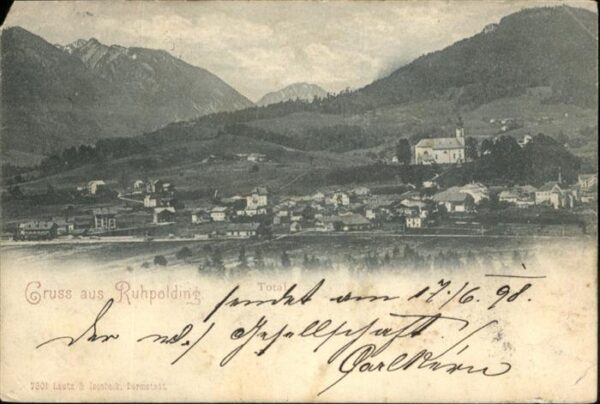 Gruss aus Ruhpolding
Total
sendet am 17/6. 98.
der Gesellschaft
7301 Lautz & Isenbeck, Darmstadt.